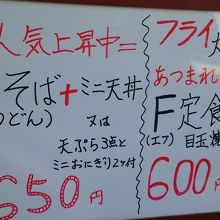 人気上昇中=
そば+ミニ天丼
うどん) 又は
天ぷら3点と
ミニおにぎり2ヶ付
650円
フライ
あつまれ
F定食
(エフ) 目玉焼
600円